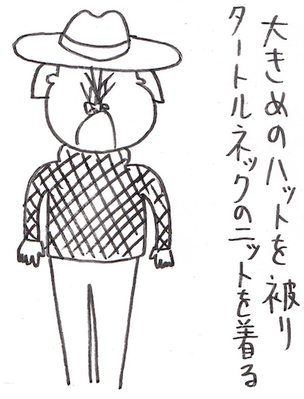 大きめのハットを被り
タートルネックのニットを着る